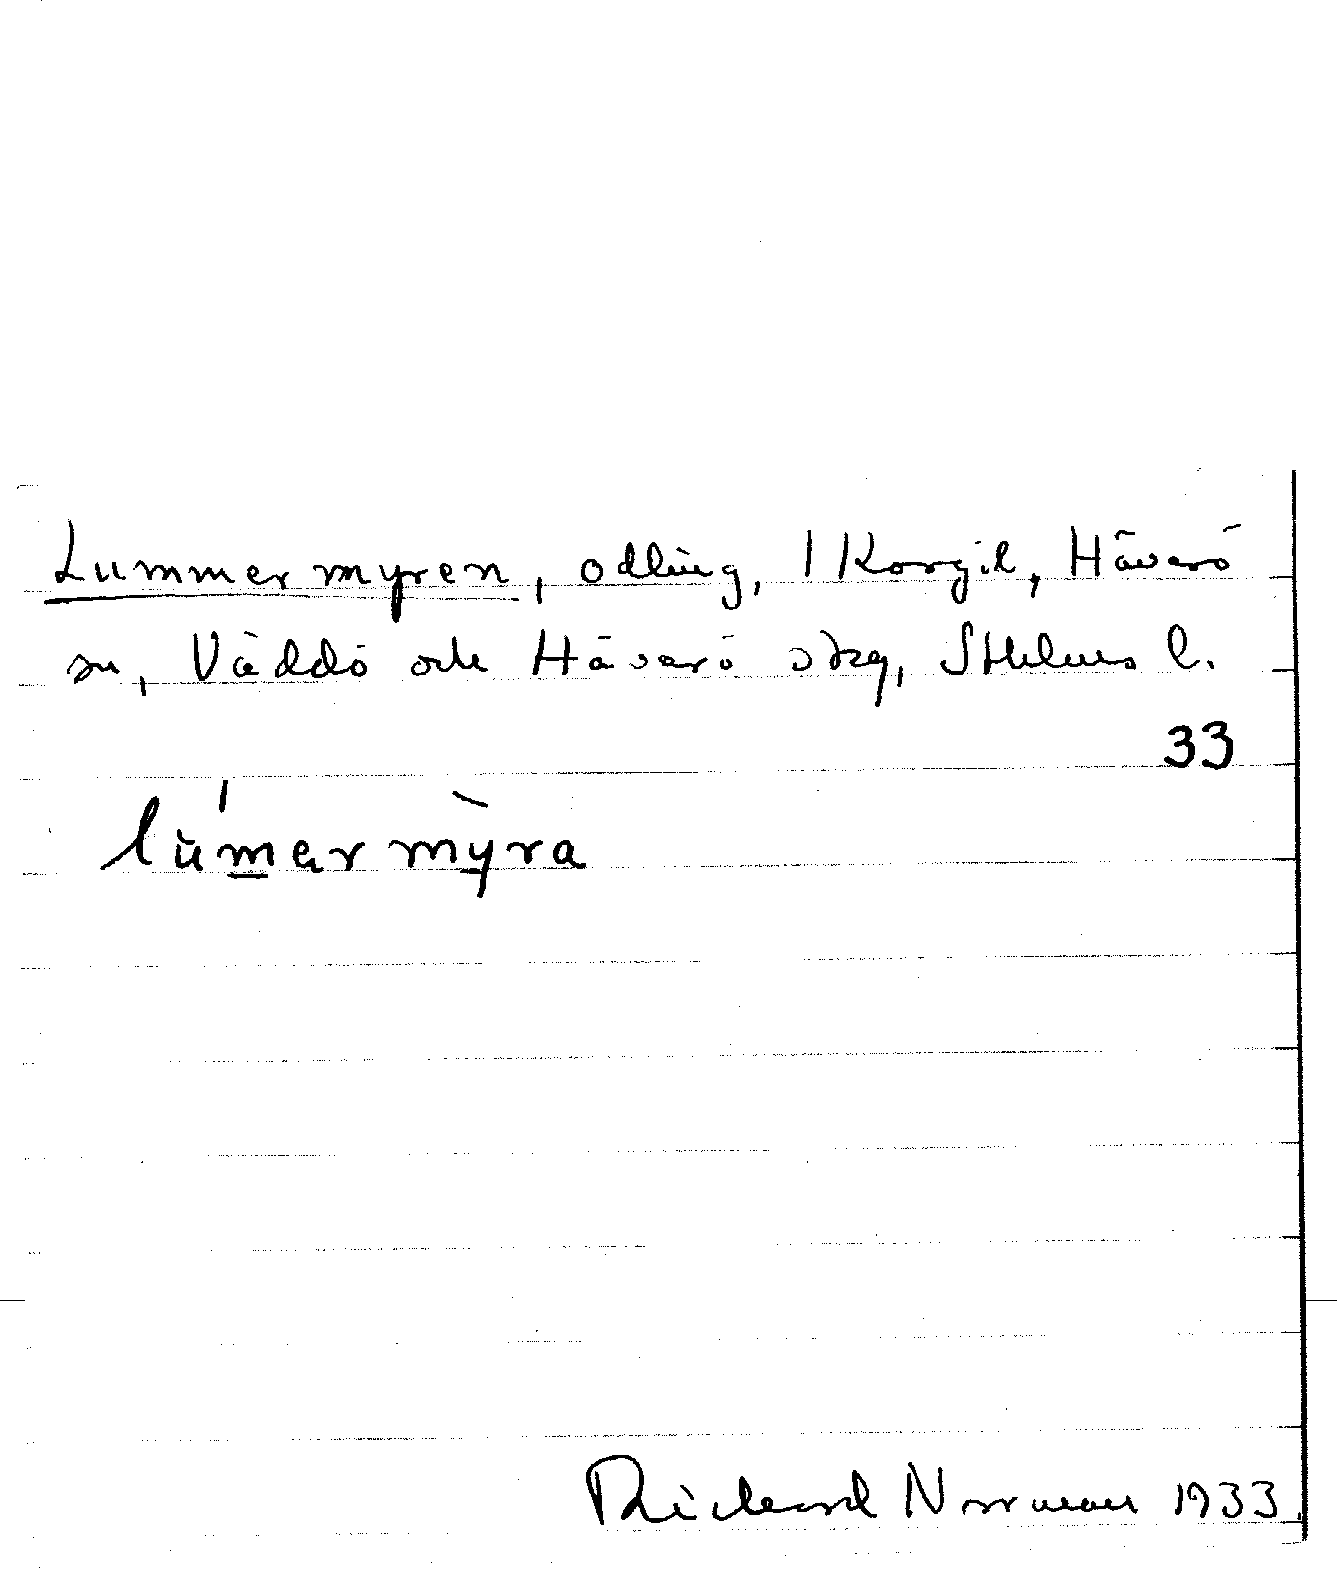 Lummermyren, odling, 1 Korgil, Häverö
sn, Väddö och Häverö skg, Sthlms l.
33
lumermyra
Rickard Norrman 1933